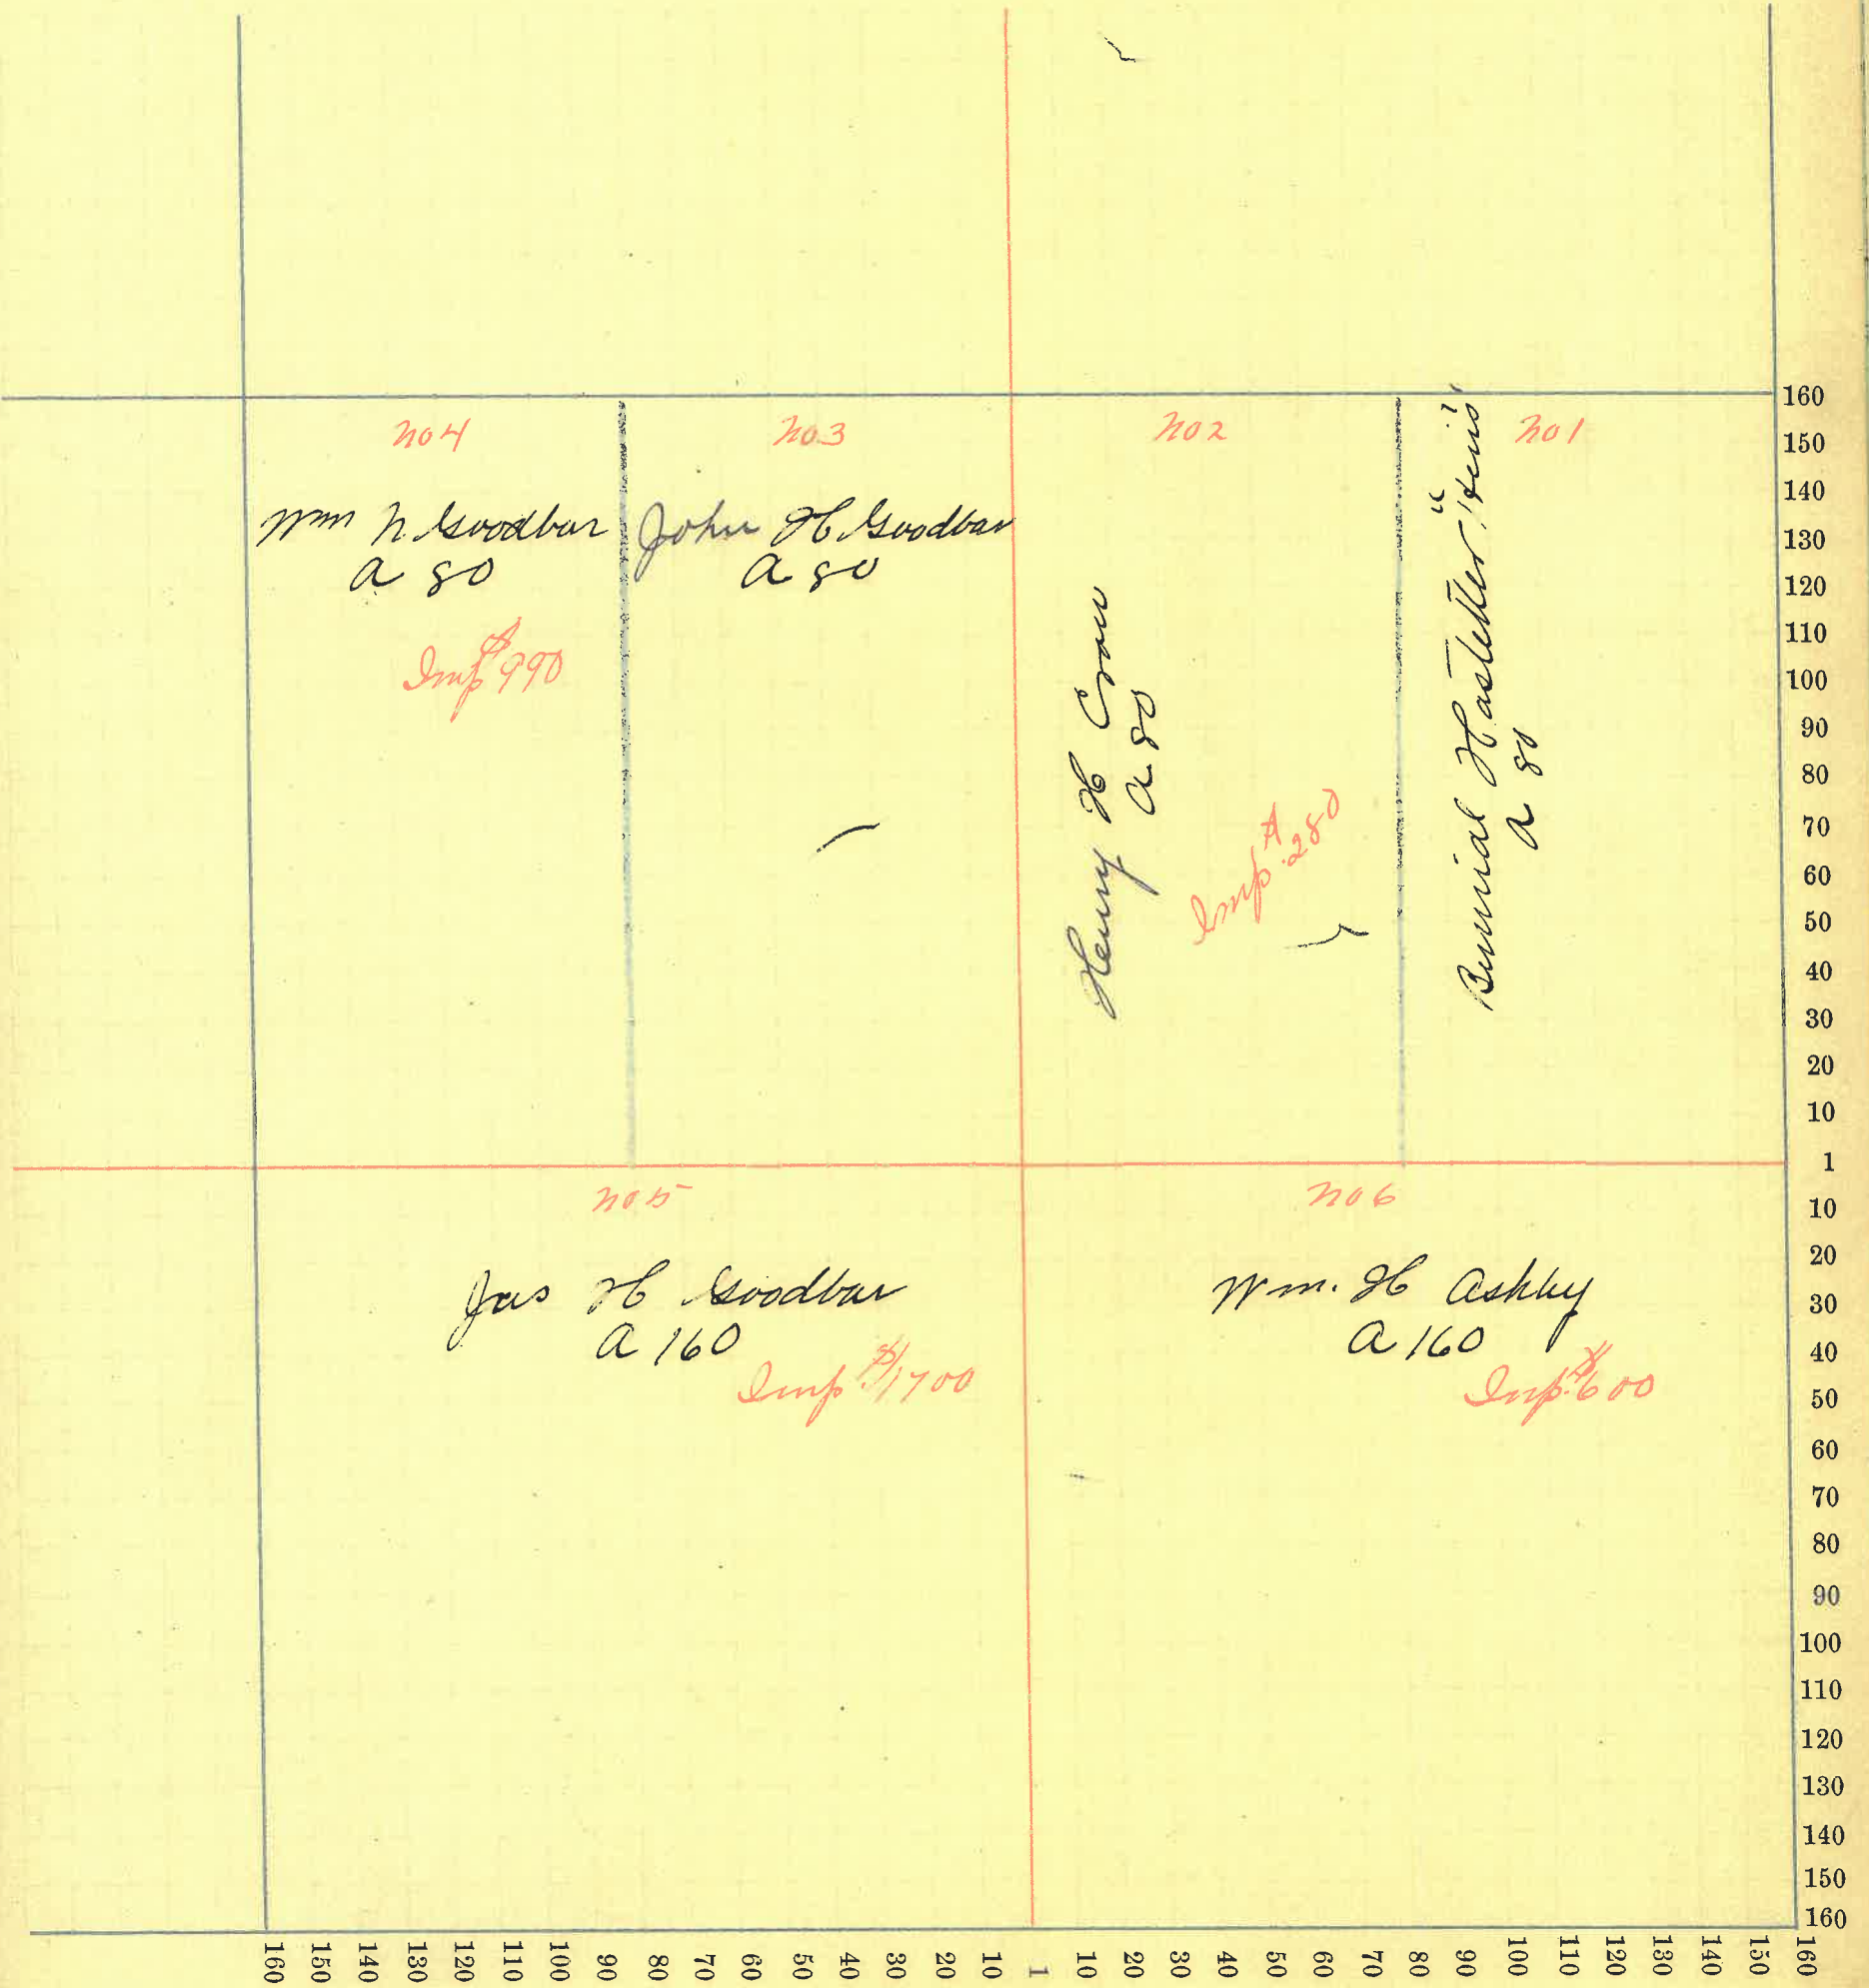 no 4
Wm N. Goodbar
A 80
Imp $990
no 3
John H Goodbar
A 80
no 2
Henry H Crow
A 80
Imp $280
no 1
Hastetter
A 80
no 5
Jas H Goodbar
A 160
Imp. $1700
no 6
Wm. H Ashby
A 160
Imp. $600
160
150
140
130
120
110
100
90
80
70
60
50
40
30
20
10
1
10
20
30
40
50
60
70
80
90
100
110
120
130
140
150
160
160 150 140 130 120 110 100 90 80 70 60 50 40 30 20 10 1 10 20 30 40 50 60 70 80 90 100 110 120 130 140 150 160